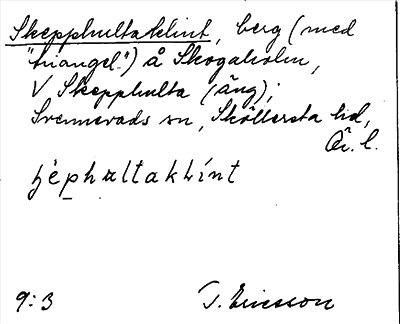 Skepphultaklint, berg (med
"triangel") å Skogaholm,
V Skepphulta (äng);
Svennevads sn, Sköllersta hd,
Ör. l.
ʃéphultaklínt
9:3 T. Ericsson